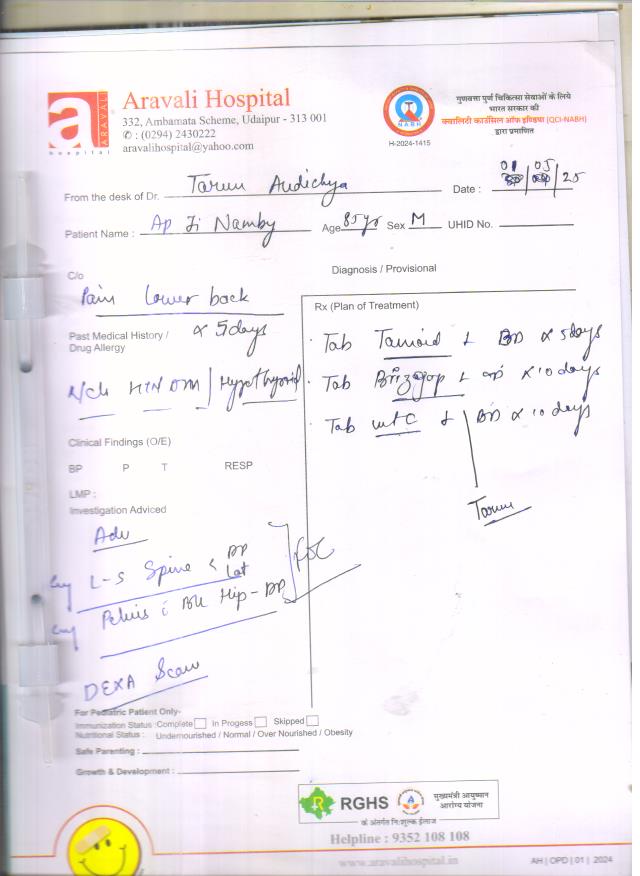 a
ARAVALI
hospital
Aravali Hospital
332, Ambamata Scheme, Udaipur - 313 001
✆ : (0294) 2430222
aravalihospital@yahoo.com
NABH
H-2024-1415
गुणवत्ता पुर्ण चिकित्सा सेवाओं के लिये
भारत सरकार की
क्वालिटी काउंसिल ऑफ इण्डिया (QCI-NABH)
द्वारा प्रमाणित
From the desk of Dr. Tarun Audichya Date : 01 05 25
Patient Name : Ap Ji Namby Age 85 yo Sex M UHID No.
C/o
Pain lower back
x 5 days
Past Medical History /
Drug Allergy
HTN DM / Hypothyroid
Clinical Findings (O/E)
BP P T RESP
LMP :
Investigation Adviced
Adv
L-S Spine AP Lat
Pelvis c B/L Hip - AP
DEXA Scan
Diagnosis / Provisional
Rx (Plan of Treatment)
Tab BD x 5 days
Tab x 10 days
Tab BD x 10 days
Tarun
For Pediatric Patient Only-
Immunization Status : Complete In Progess Skipped
Nutritional Status : Undernourished / Normal / Over Nourished / Obesity
Safe Parenting :
Growth & Development :
RGHS
मुख्यमंत्री आयुष्मान
आरोग्य योजना
के अंतर्गत निःशुल्क ईलाज
Helpline : 9352 108 108
www.aravalihospital.in
AH | OPD | 01 | 2024